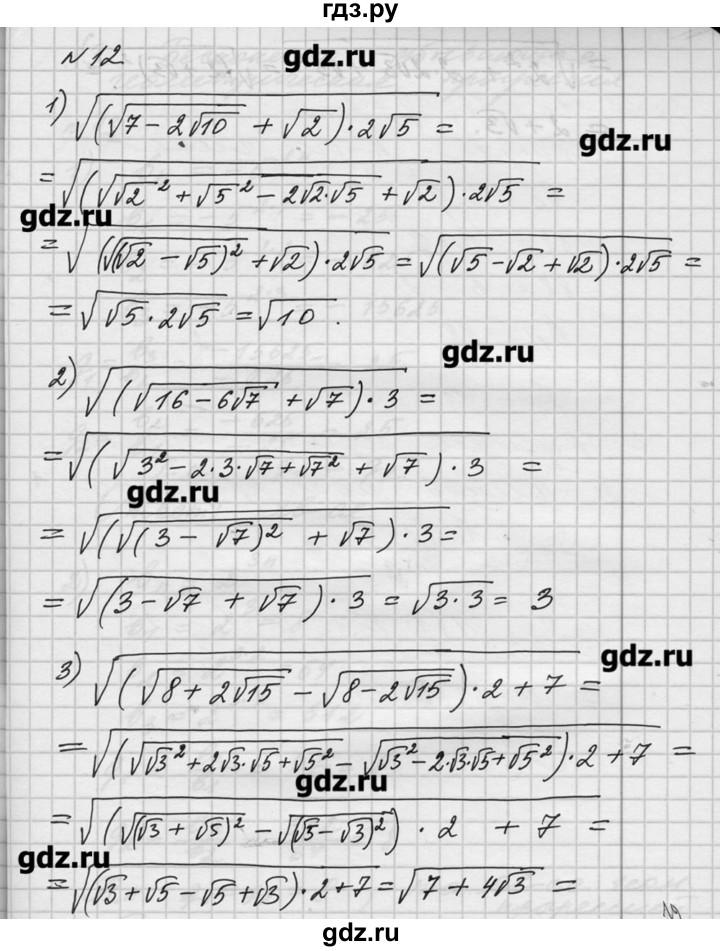 гдз.ру
№12 gdz.ru
1) √((√(7 - 2√10) + √2)·2√5) =
gdz.ru
= √((√(√2² + √5² - 2√2·√5) + √2)·2√5) =
gdz.ru
= √((√((√2 - √5)²) + √2)·2√5) = √((√5 - √2 + √2)·2√5) =
= √(√5·2√5) = √10.
gdz.ru
2) √((√(16 - 6√7) + √7)·3) =
= √((√(3² - 2·3·√7 + √7²) + √7)·3) =
gdz.ru
= √((√((3 - √7)²) + √7)·3) =
= √((3 - √7 + √7)·3) = √(3·3) = 3
gdz.ru
3) √((√(8 + 2√15) - √(8 - 2√15))·2 + 7) =
= √((√(√3² + 2√3·√5 + √5²) - √(√3² - 2·√3·√5 + √5²))·2 + 7) =
gdz.ru
= √((√((√3 + √5)²) - √((√5 - √3)²))·2 + 7) =
gdz.ru
= √((√3 + √5 - √5 + √3)·2 + 7) = √(7 + 4√3) =
gdz.ru